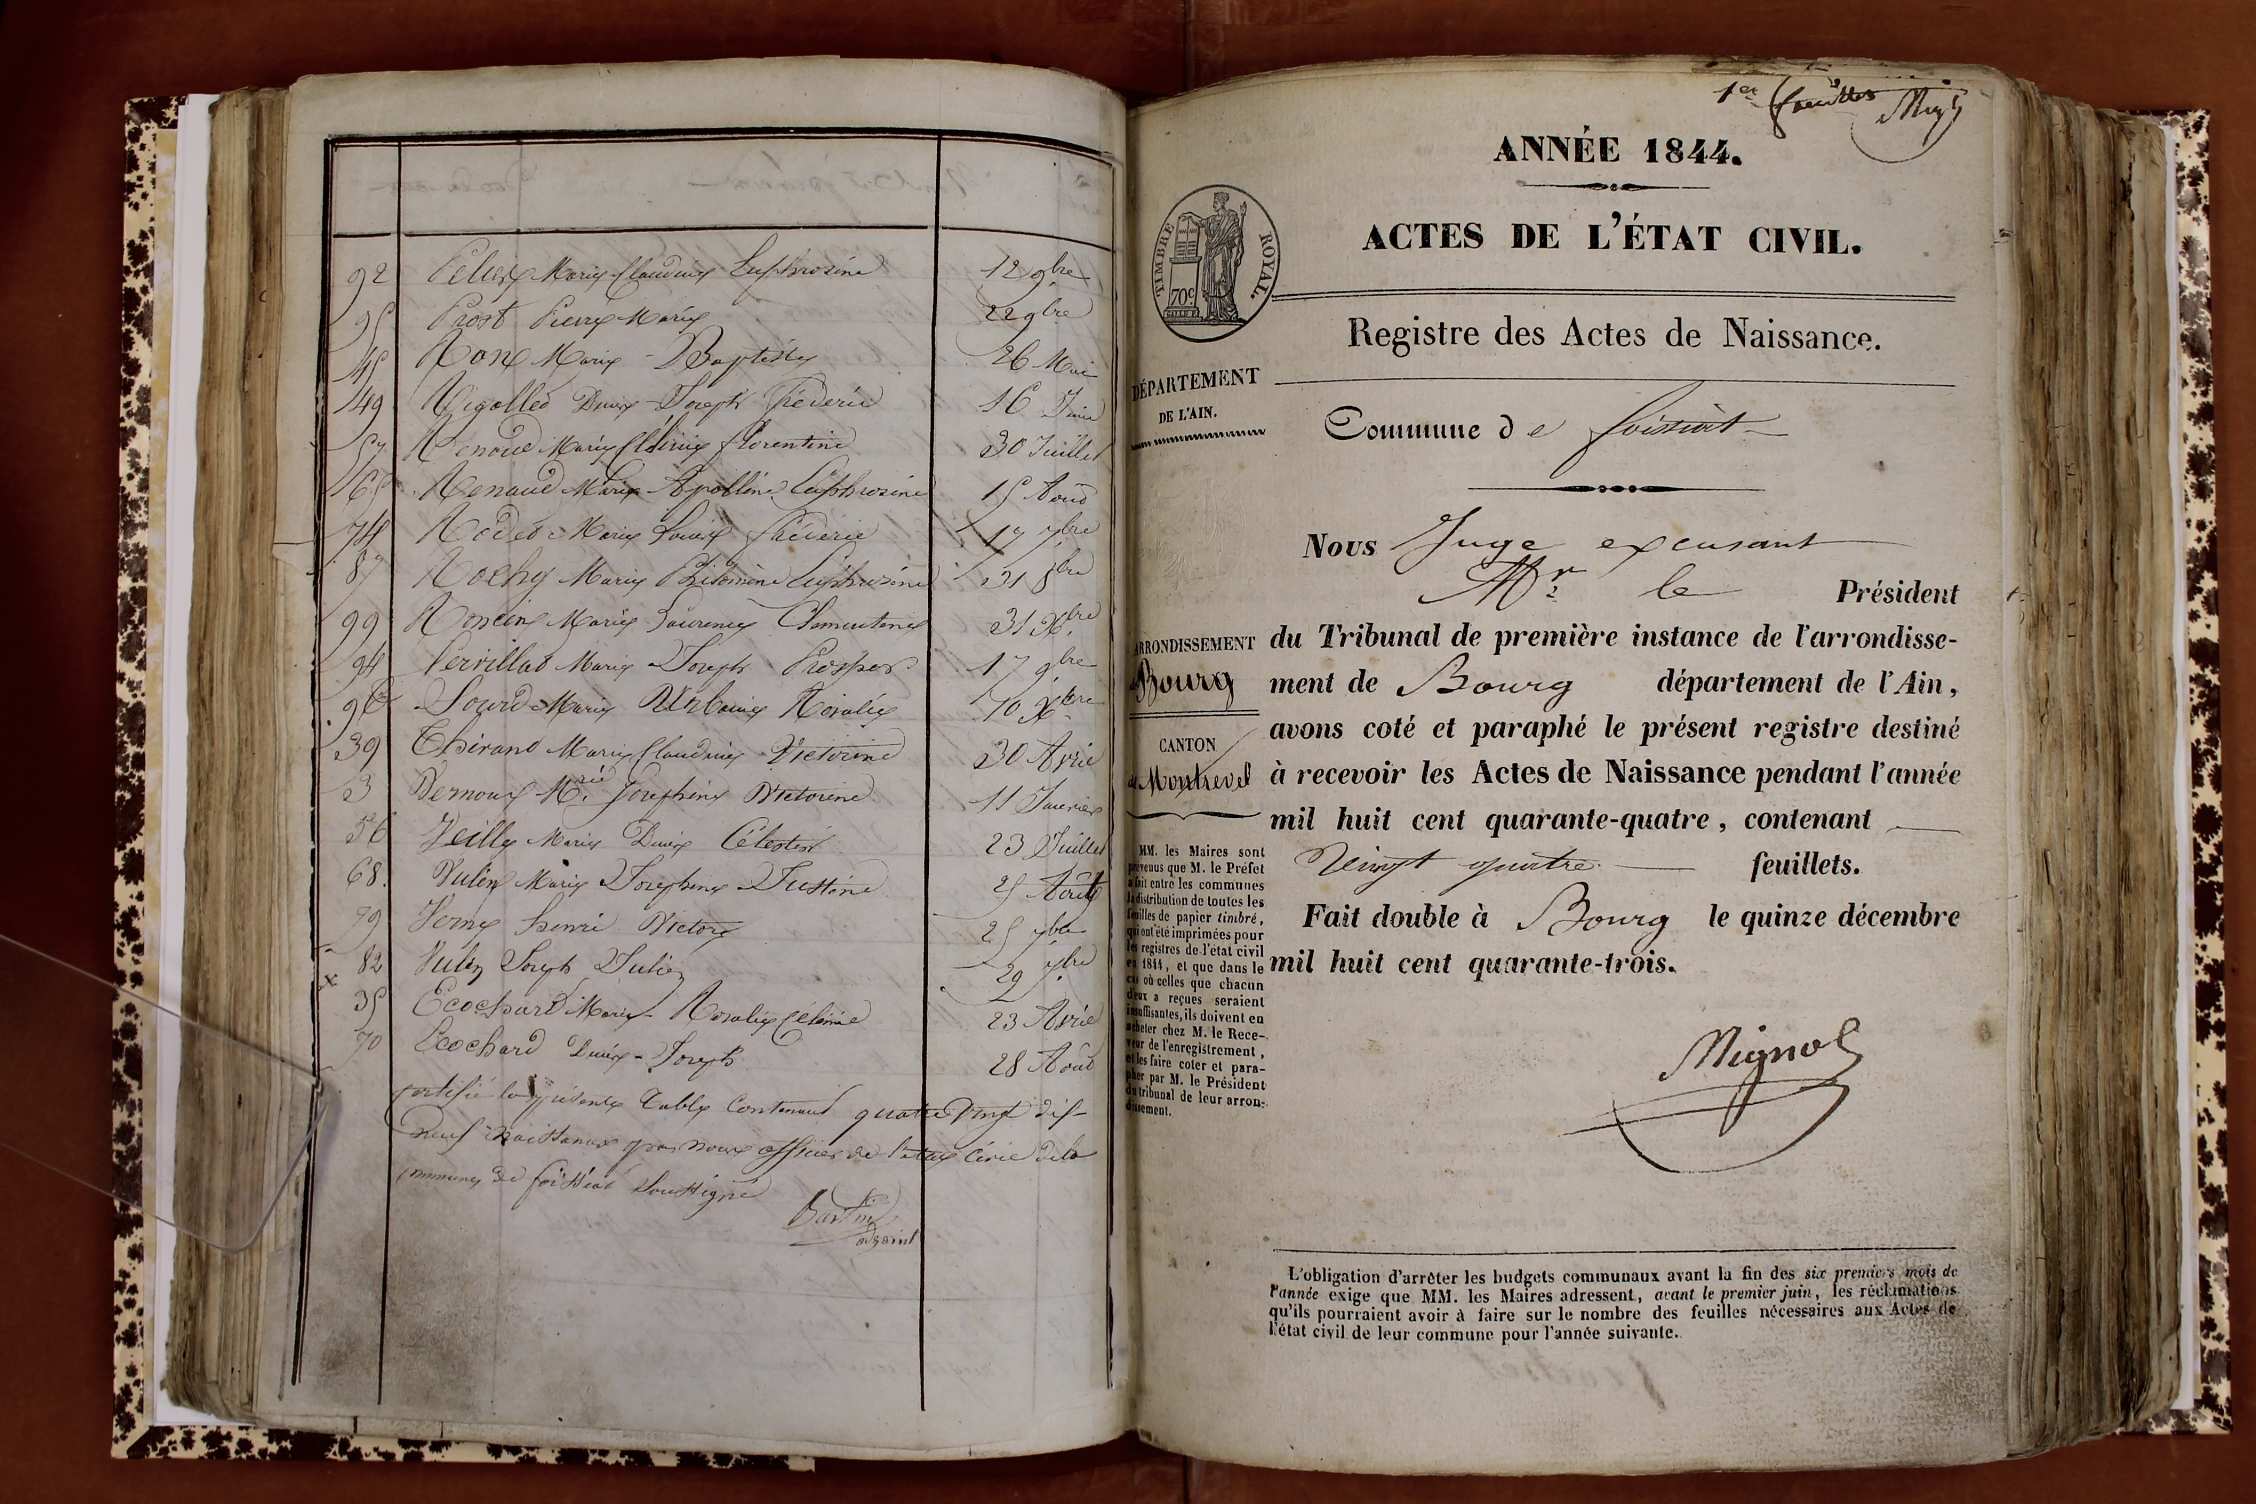 92 Pelus Marie Claudine Euphrosine 12 9bre
95 Prost Pierre Marie 22 9bre
45 Marie Baptiste 26 Mai
49 Joseph Frédéric 16 Juin
57 Renoud Marie Florentine 30 Juillet
65 Renaud Marie Apolline Euphrosine 15 Août
74 Marie Louis Fréderic 17 7bre
87 Rochy Marie Philomène Euphrosine 31 8bre
99 Roncin Marie Laurence Clémentine 31 Xbre
94 Marie Joseph Prosper 17 9bre
96 Sourd Marie Urbaine Rosalie 10 Xbre
39 Thirand Marie Claudine Victorine 30 Avril
3 Vernoux Mrie Josephine Victorine 11 Janvier
56 Veille Marie Denis Célestin 23 Juillet
68. Vulin Marie Josephine Justine 25 Août
79 Verne henri Victor 25 7bre
x 82 Vulin Joseph Julien 29 7bre
35 Ecochard Marie Rosalie Célinie 23 Avril
70 Ecochard Denis Joseph 28 Août
Certifié la présente Table Contenant quatre Vingt dix-
neuf Naissances par nous officier de l'état Civil de la
Commune de foissiat Soussigné
adjoint
1er feuillet
ANNÉE 1844.
TIMBRE ROYAL.
70c
ACTES DE L'ÉTAT CIVIL.
Registre des Actes de Naissance.
DÉPARTEMENT
DE L'AIN.
Commune de foissiat
Nous Juge excusant
Mr le Président
du Tribunal de première instance de l'arrondisse-
ment de Bourg département de l'Ain,
avons coté et paraphé le présent registre destiné
à recevoir les Actes de Naissance pendant l'année
mil huit cent quarante-quatre, contenant
Vingt quatre feuillets.
Fait double à Bourg le quinze décembre
mil huit cent quarante-trois.
Mignot
ARRONDISSEMENT
de Bourg
CANTON
de Montrevel
MM. les Maires sont
prévenus que M. le Préfet
a fait entre les communes
la distribution de toutes les
feuilles de papier timbré,
qui ont été imprimées pour
les registres de l'état civil
en 1844, et que dans le
cas où celles que chacun
d'eux a reçues seraient
insuffisantes, ils doivent en
acheter chez M. le Rece-
veur de l'enregistrement,
et les faire coter et para-
pher par M. le Président
du tribunal de leur arron-
dissement.
L'obligation d'arrêter les budgets communaux avant la fin des six premiers mois de
l'année exige que MM. les Maires adressent, avant le premier juin, les réclamations
qu'ils pourraient avoir à faire sur le nombre des feuilles nécessaires aux Actes de
l'état civil de leur commune pour l'année suivante.